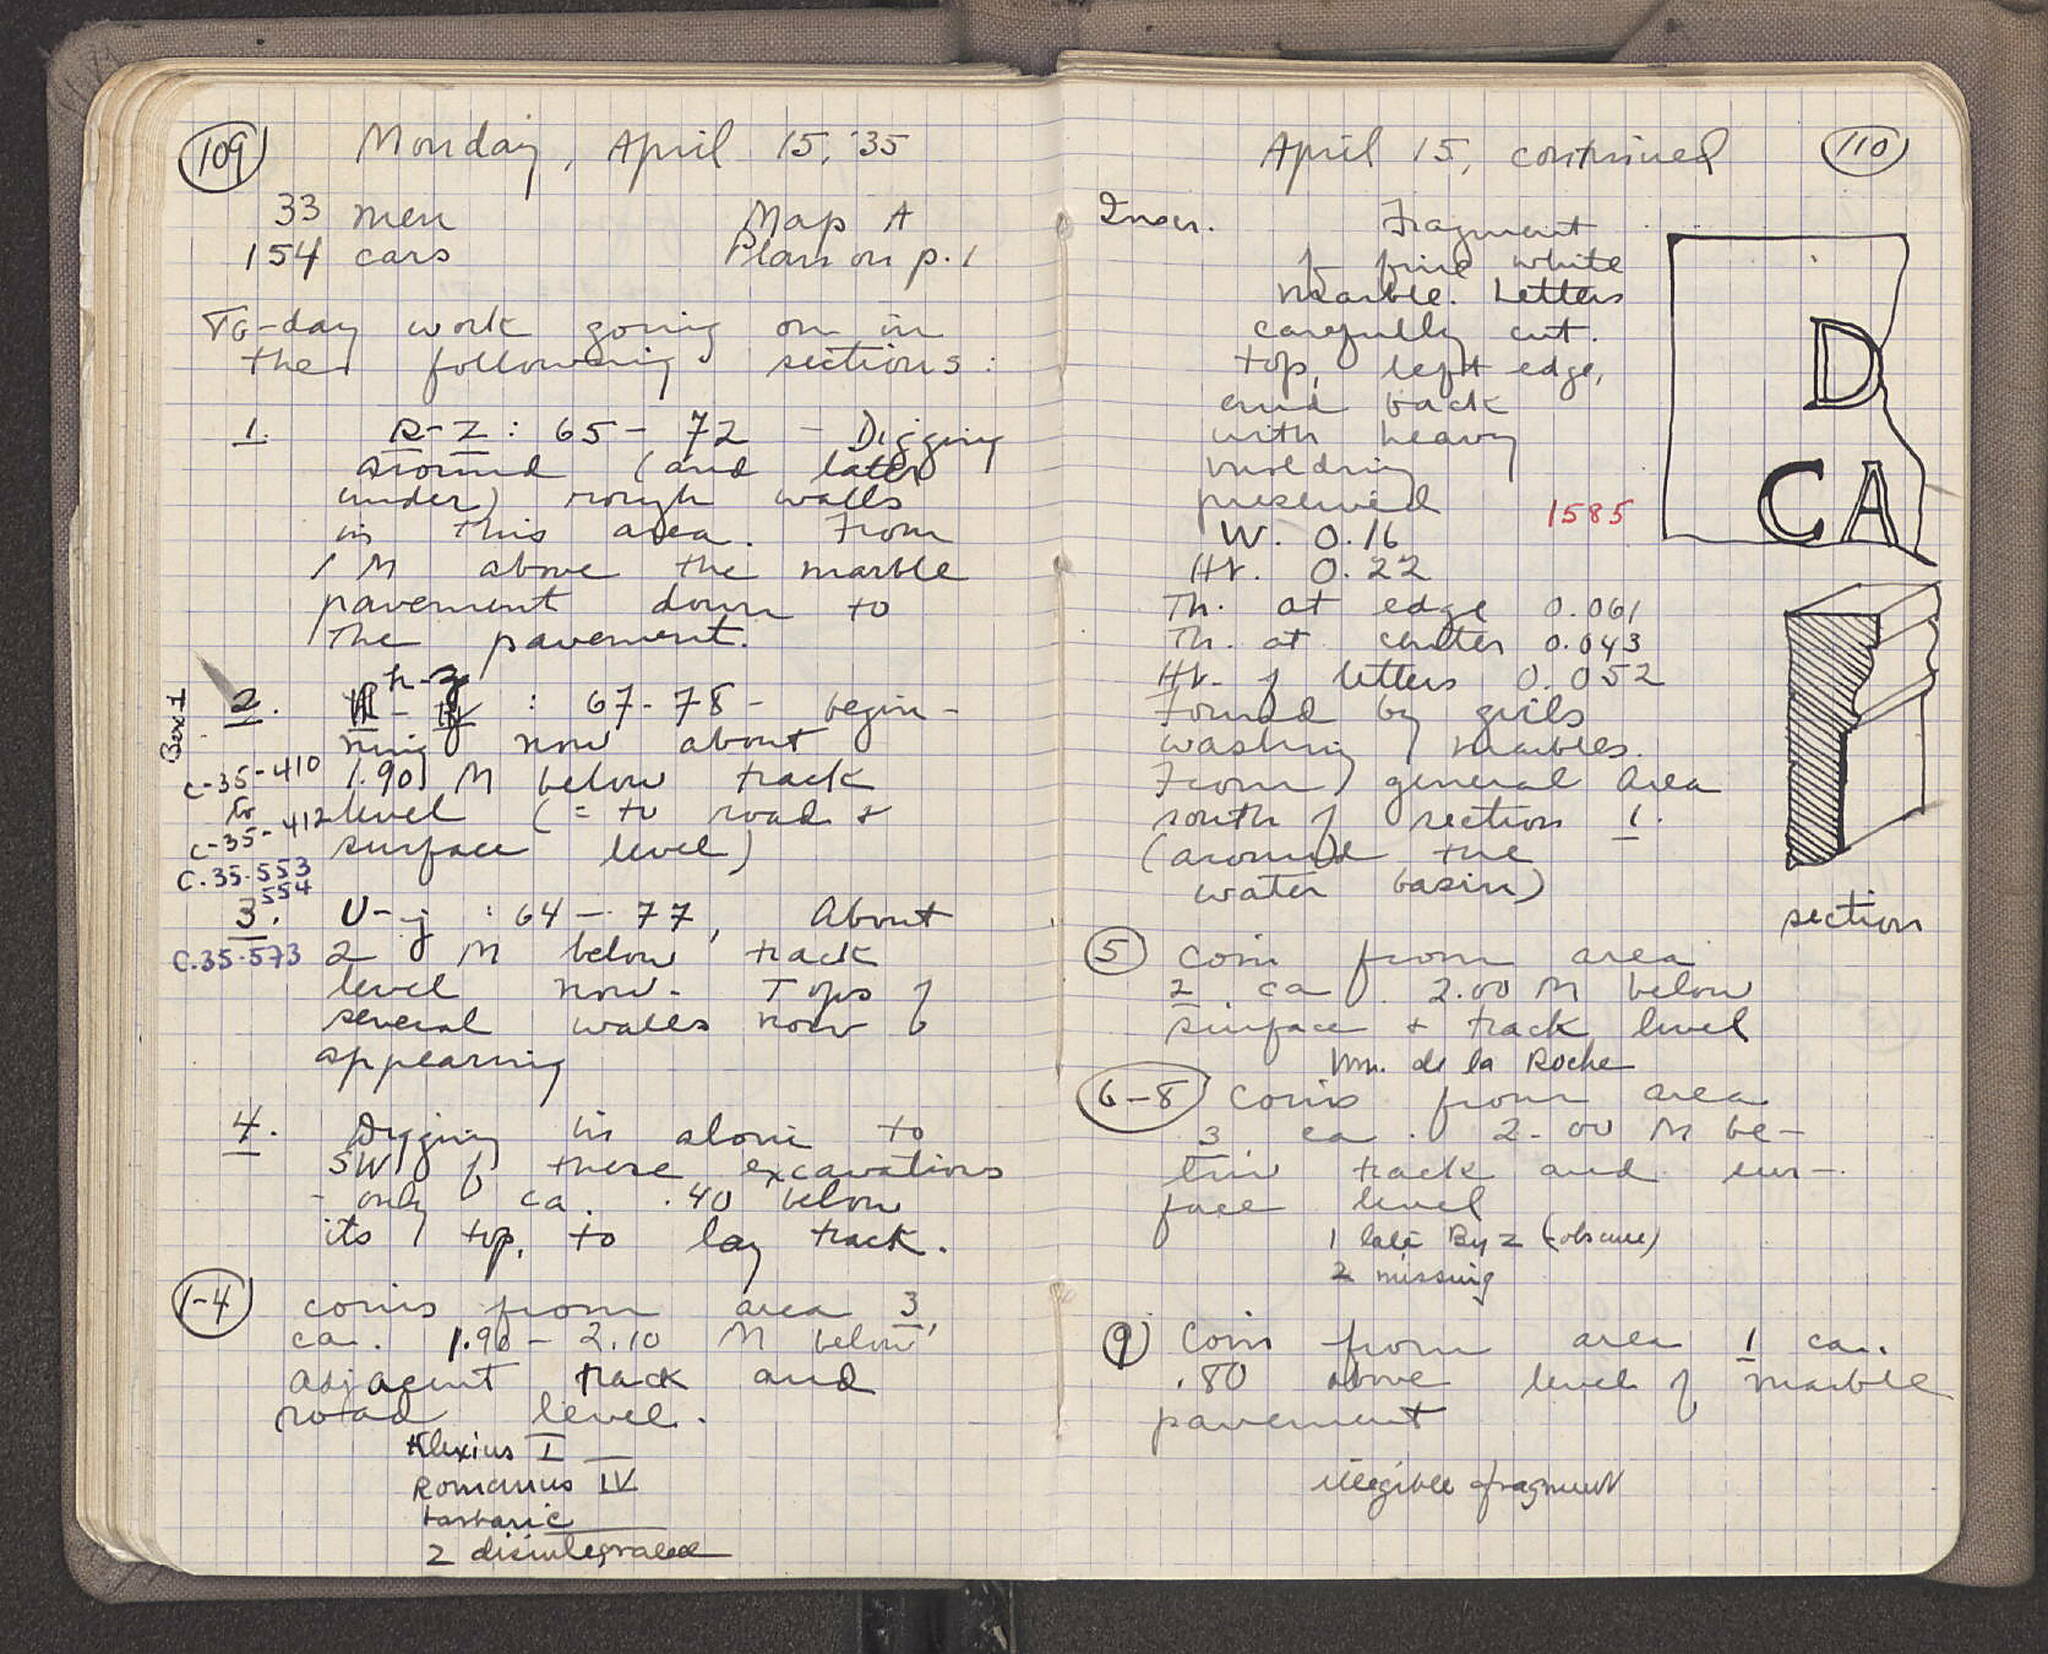 109
Monday, April 15, '35
33 men
Map A
154 cars
Plan on p. 1
To-day work going on in
the following sections:
1. R-Z: 65-72 - Digging
around (and later
under) rough walls
in this area. From
1 M above the marble
pavement down to
the pavement.
2. h-z : 67-78 - begin-
ning now about
1.90 M below track
level (= to road &
surface level)
Box 1
C-35-410
to
C-35-412
C.35.553
554
3. U-j : 64-77, About
2 M below track
level now. Tops of
several walls now
appearing
C.35-573
4. Digging in alone to
SW of these excavations
- only ca. .40 below
its top, to lay track.
1-4 coins from area 3,
ca. 1.90-2.10 M below
adjacent track and
road level.
Alexius I
Romanus IV
barbaric
2 disintegrated
April 15, continued
110
Inscr. Fragment
of fine white
marble. Letters
carefully cut.
top, left edge,
and back
with heavy
moldring
preserved
1585
W. 0.16
Ht. 0.22
Th. at edge 0.061
Th. at center 0.043
Ht. of letters 0.052
Found by girls
washing marbles.
From general area
south of section 1.
(around the
water basin)
D
CA
section
5 coin from area
2 ca. 2.00 M below
surface + track level
Wm. de la Roche
6-8 coins from area
3 ca. 2.00 M be-
low track and sur-
face level
1 late Byz (obscure)
2 missing
9 Coin from area 1 ca.
.80 above level of marble
pavement
illegible fragment